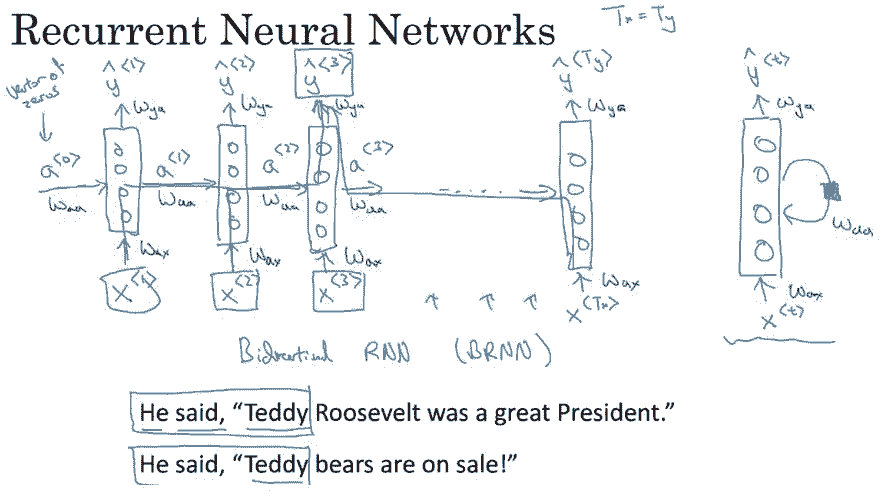 Recurrent Neural Networks
Tx = Ty
vector of zeros
ŷ<1> ŷ<2> ŷ<3> ŷ<Ty> ŷ<t>
Wya Wya Wya Wya Wya
a<0> a<1> a<2> a<3> -....
Waa Waa Waa Waa Waa
Wax Wax Wax Wax Wax
x<1> x<2> x<3> x<Tx> x<t>
Bidirectional RNN (BRNN)
He said, “Teddy Roosevelt was a great President.”
He said, “Teddy bears are on sale!”